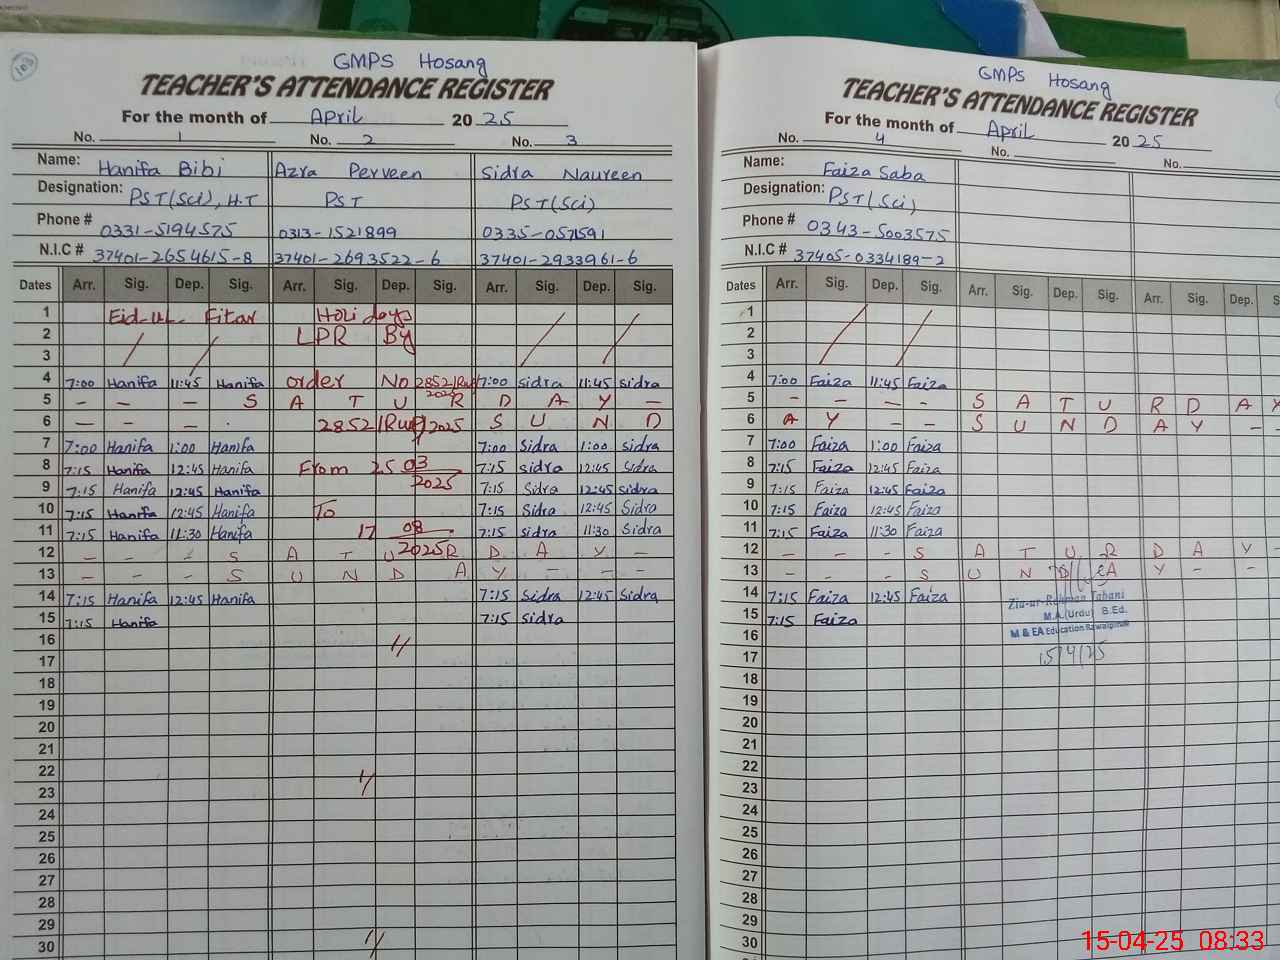 103
GMPS Hosang
TEACHER'S ATTENDANCE REGISTER
For the month of April 2025
No. 1 No. 2 No. 3
Name: Hanifa Bibi Azra Perveen Sidra Naureen
Designation: PST(Sci), H.T PST PST(Sci)
Phone # 0331-5194575 0313-1521899 0335-0571591
N.I.C # 37401-2654615-8 37401-2693522-6 37401-2933961-6
Dates Arr. Sig. Dep. Sig. Arr. Sig. Dep. Sig. Arr. Sig. Dep. Sig.
1 Eid-ul Fitar Holidays
2 LPR By
3
4 7:00 Hanifa 11:45 Hanifa order No 2852/Rwp 2025 7:00 Sidra 11:45 Sidra
5 - - - S A T U R D A Y -
6 - - - . 2852/Rwp/2025 S U N D
7 7:00 Hanifa 1:00 Hanifa 7:00 Sidra 1:00 Sidra
8 7:15 Hanifa 12:45 Hanifa From 25 03 7:15 Sidra 12:45 Sidra
9 7:15 Hanifa 12:45 Hanifa 2025 7:15 Sidra 12:45 Sidra
10 7:15 Hanifa 12:45 Hanifa To 7:15 Sidra 12:45 Sidra
11 7:15 Hanifa 11:30 Hanifa 17 08 7:15 Sidra 11:30 Sidra
12 - - - S A T U 2025 R D A Y -
13 - - - S U N D A Y - - -
14 7:15 Hanifa 12:45 Hanifa 7:15 Sidra 12:45 Sidra
15 7:15 Hanifa 7:15 Sidra
16
17
18
19
20
21
22
23
24
25
26
27
28
29
30
GMPS Hosang
TEACHER'S ATTENDANCE REGISTER
For the month of April 2025
No. 4 No. No.
Name: Faiza Saba
Designation: PST(Sci)
Phone # 0343-5003575
N.I.C # 37405-0334189-2
Dates Arr. Sig. Dep. Sig. Arr. Sig. Dep. Sig. Arr. Sig. Dep. S
1
2
3
4 7:00 Faiza 11:45 Faiza
5 - - - - S A T U R D A Y
6 A Y - - S U N D A Y - -
7 7:00 Faiza 1:00 Faiza
8 7:15 Faiza 12:45 Faiza
9 7:15 Faiza 12:45 Faiza
10 7:15 Faiza 12:45 Faiza
11 7:15 Faiza 11:30 Faiza
12 - - - S A T U R D A Y -
13 - - - S U N D A Y - -
14 7:15 Faiza 12:45 Faiza
Zia-ur-Rehman Tahani
15 7:15 Faiza
M.A.(Urdu) B.Ed.
16
M & EA Education Rawalpindi
17
15/4/25
18
19
20
21
22
23
24
25
26
27
28
29
30
15-04-25 08:33